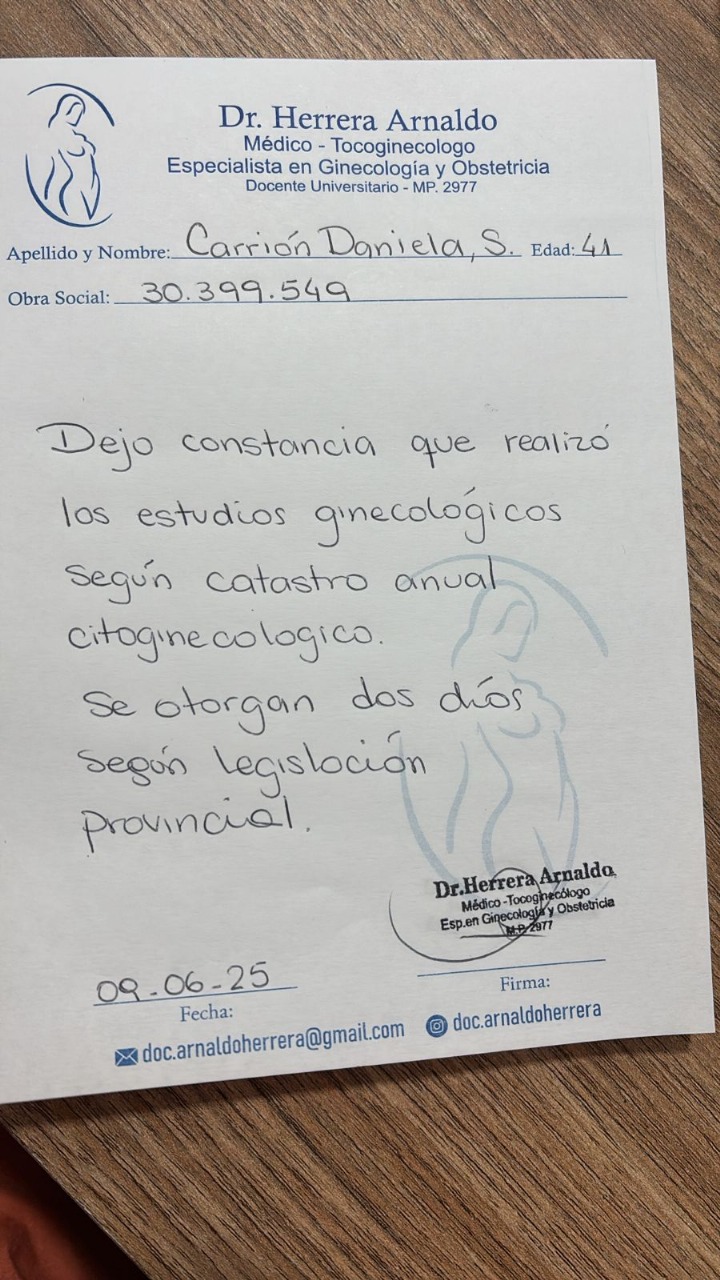 Dr. Herrera Arnaldo
Médico - Tocoginecologo
Especialista en Ginecología y Obstetricia
Docente Universitario - MP. 2977
Apellido y Nombre: Carrión Daniela, S. Edad: 41
Obra Social: 30.399.549
Dejo constancia que realizó
los estudios ginecológicos
según catastro anual
citoginecologico.
Se otorgan dos días
según legislación
provincial.
Dr.Herrera Arnaldo
Médico -Tocoginecólogo
Esp.en Ginecología y Obstetricia
M.P. 2977
09-06-25
Fecha:
Firma:
doc.arnaldoherrera@gmail.com doc.arnaldoherrera